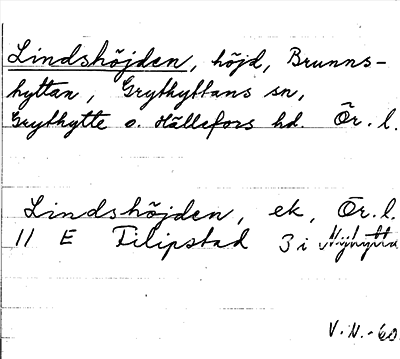 Lindshöjden, höjd, Brunns-
hyttan, Grythyttans sn,
Grythytte o. Hällefors hd. Ör. l.
Lindshöjden, ek, Ör. l.
11 E Filipstad 3 i Nyhyttan
V. N. - 60